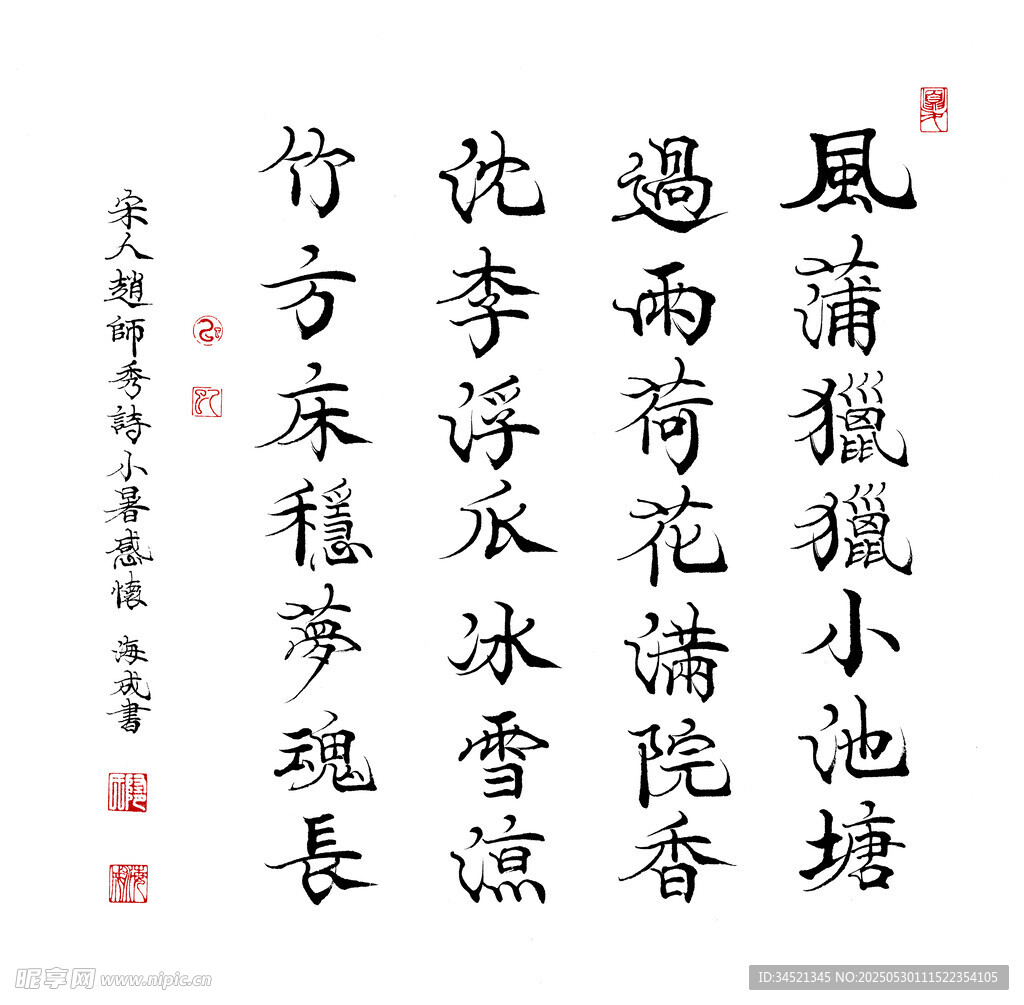 風蒲獵獵小池塘
過雨荷花滿院香
沈李浮瓜冰雪涼
竹方床穩夢魂長
宋人趙師秀詩小暑感懷 海成書
昵享网 www.nipic.cn
ID:34521345 NO:20250530111522354105